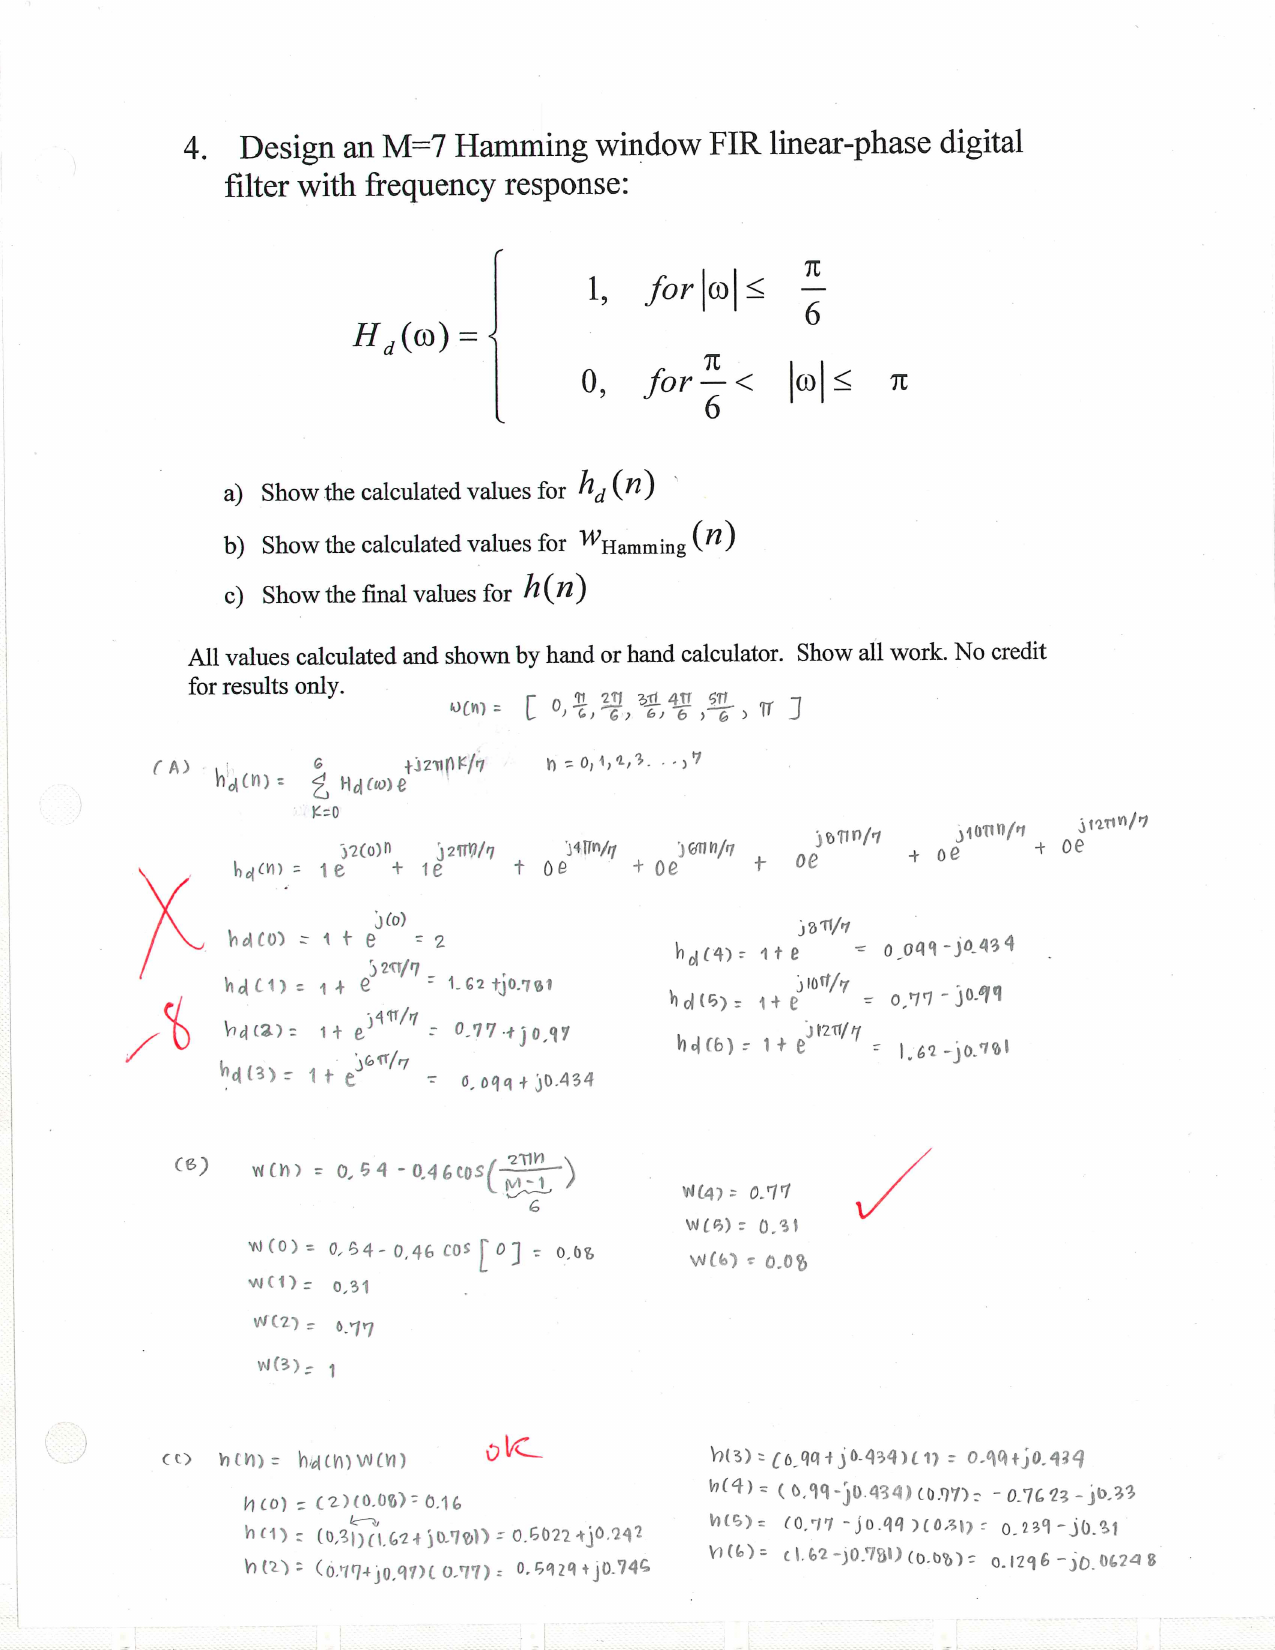 4. Design an M=7 Hamming window FIR linear-phase digital
filter with frequency response:
1, for |ω| ≤ π/6
H_d(ω) = {
0, for π/6 < |ω| ≤ π
a) Show the calculated values for h_d(n)
b) Show the calculated values for w_Hamming(n)
c) Show the final values for h(n)
All values calculated and shown by hand or hand calculator. Show all work. No credit
for results only.
ω(n) = [ 0, π/6, 2π/6, 3π/6, 4π/6, 5π/6, π ]
(A) h_d(n) = Σ_{K=0}^{6} H_d(ω) e^{+j2πnK/7} n = 0, 1, 2, 3. . . , 7
h_d(n) = 1e^{j2(0)n} + 1e^{j2πn/7} + 0e^{j4πn/7} + 0e^{j6πn/7} + 0e^{j8πn/7} + 0e^{j10πn/7} + 0e^{j12πn/7}
X
-8
h_d(0) = 1 + e^{j(0)} = 2
h_d(1) = 1 + e^{j2π/7} = 1.62 + j0.781
h_d(2) = 1 + e^{j4π/7} = 0.77 + j0.97
h_d(3) = 1 + e^{j6π/7} = 0.099 + j0.434
h_d(4) = 1 + e^{j8π/7} = 0.099 - j0.434
h_d(5) = 1 + e^{j10π/7} = 0.77 - j0.99
h_d(6) = 1 + e^{j12π/7} = 1.62 - j0.781
(B) w(n) = 0.54 - 0.46 cos(2πn/(M-1))
6
w(0) = 0.54 - 0.46 cos [0] = 0.08
w(1) = 0.31
w(2) = 0.77
w(3) = 1
w(4) = 0.77
w(5) = 0.31
w(6) = 0.08
✓
(C) h(n) = h_d(n) w(n)
ok
h(0) = (2)(0.08) = 0.16
h(1) = (0.31)(1.62 + j0.781) = 0.5022 + j0.242
h(2) = (0.77 + j0.97)(0.77) = 0.5929 + j0.745
h(3) = (0.99 + j0.434)(1) = 0.99 + j0.434
h(4) = (0.99 - j0.434)(0.77) = - 0.7623 - j0.33
h(5) = (0.77 - j0.99)(0.31) = 0.239 - j0.31
h(6) = (1.62 - j0.781)(0.08) = 0.1296 - j0.06248